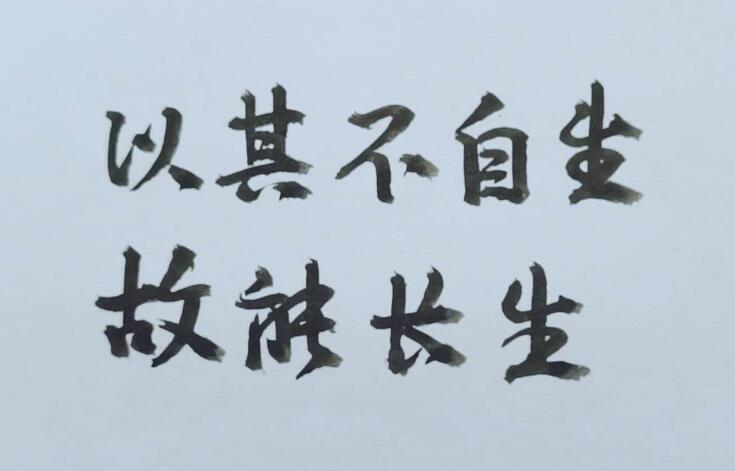 以其不自生
故能长生